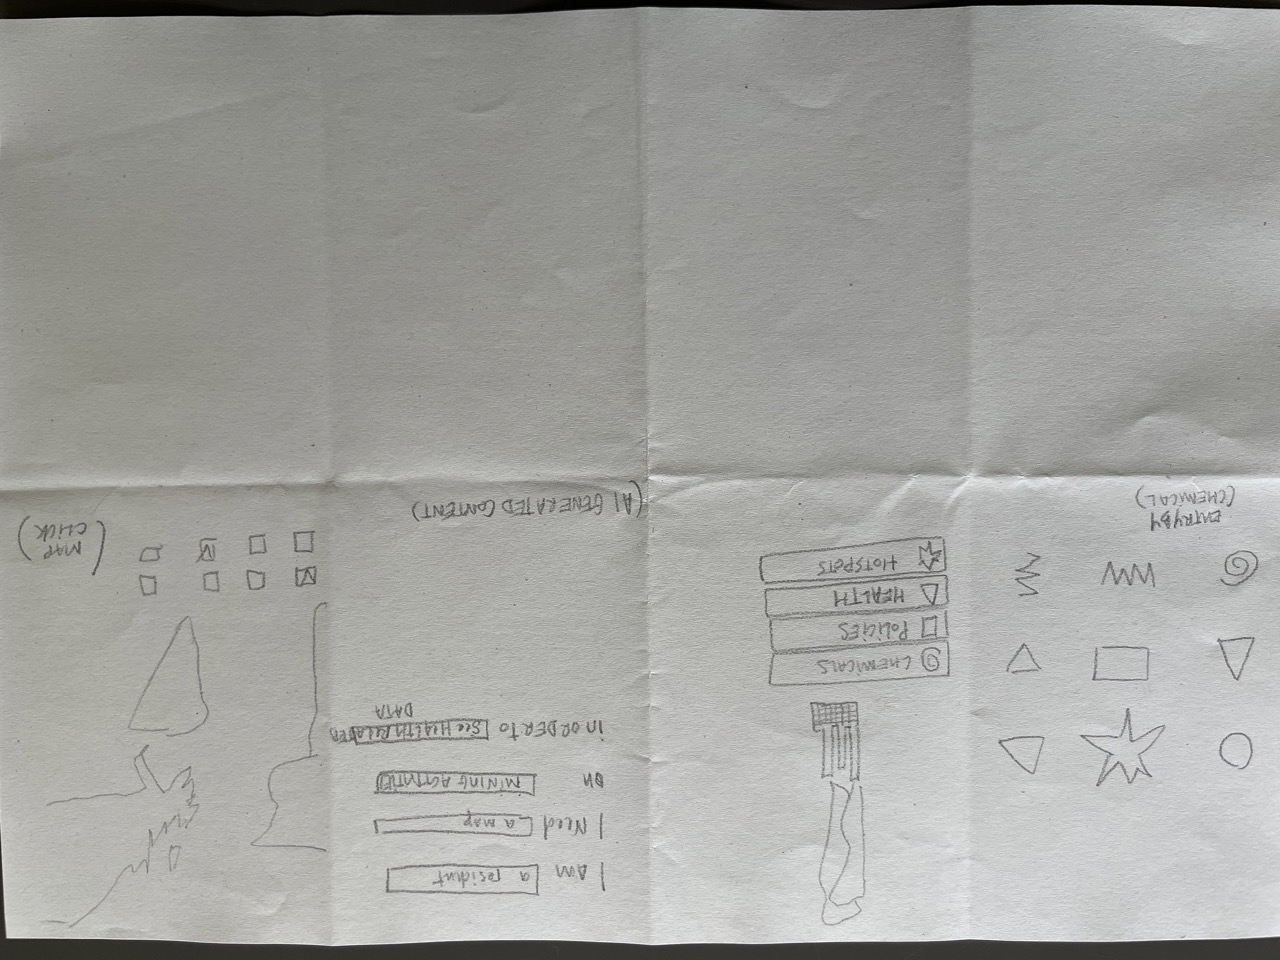 ENTRY BY
(CHEMICAL)
CHEMICALS
POLICIES
HEALTH
HOTSPOTS
I Am a resident
I Need a map
on MINING ACTIVITIES
in ORDER to See HEALTH RELATED
DATA
(AI GENERATED CONTENT)
(MAP
CLICK)